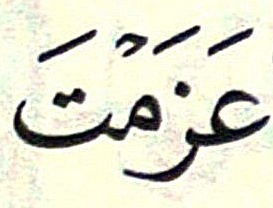 عَزَمْتَ